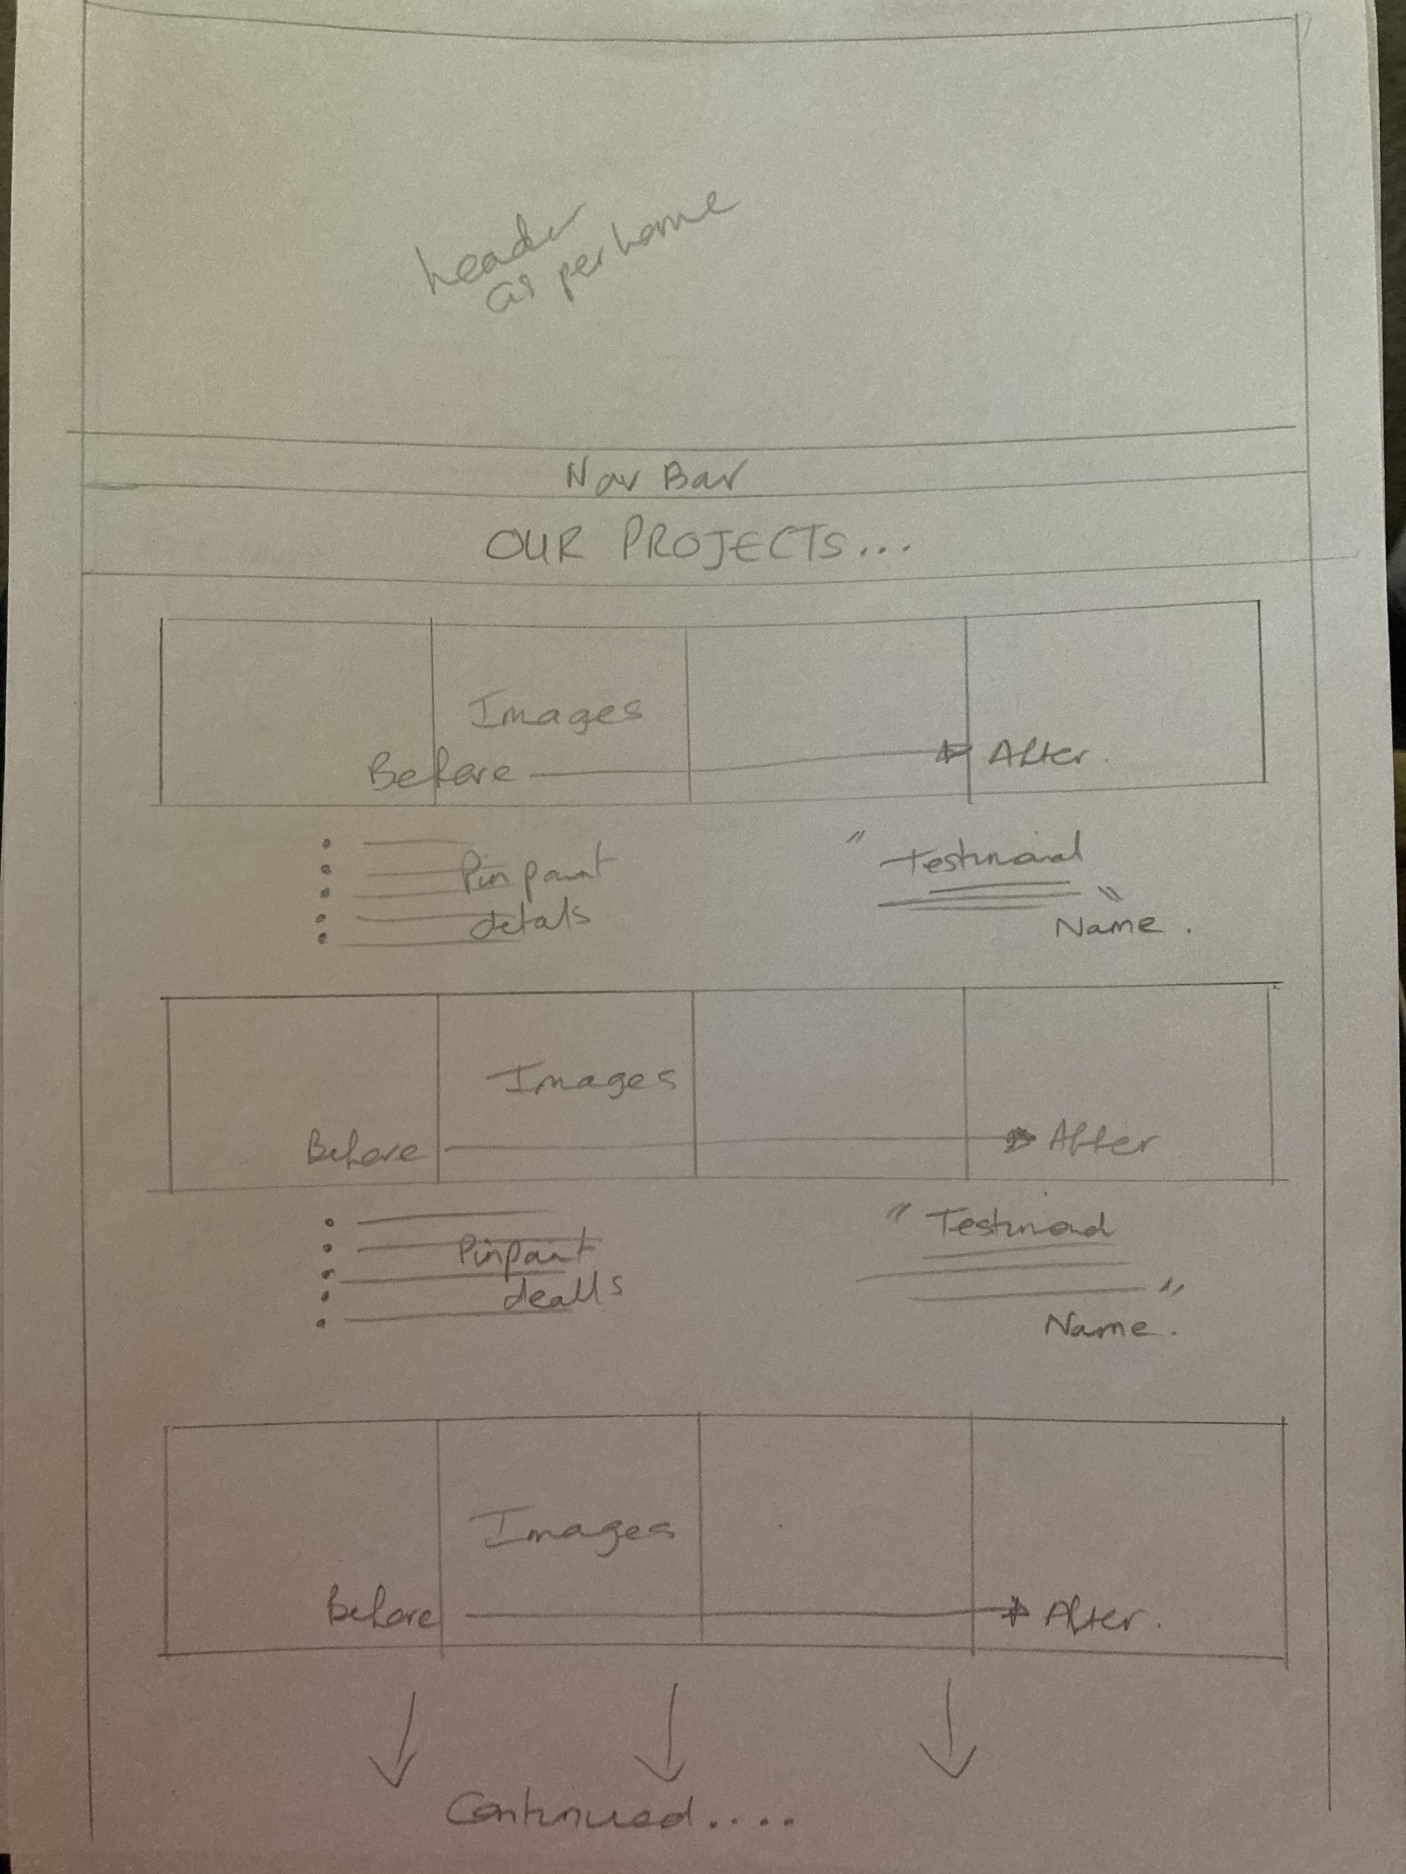 header
as per home
Nav Bar
OUR PROJECTS...
Images
Before After.
Pin point
details
" Testimonial
"
Name.
Images
Before After
Pinpoint
deatls
" Testimonial
"
Name.
Images
Before After.
Continued....